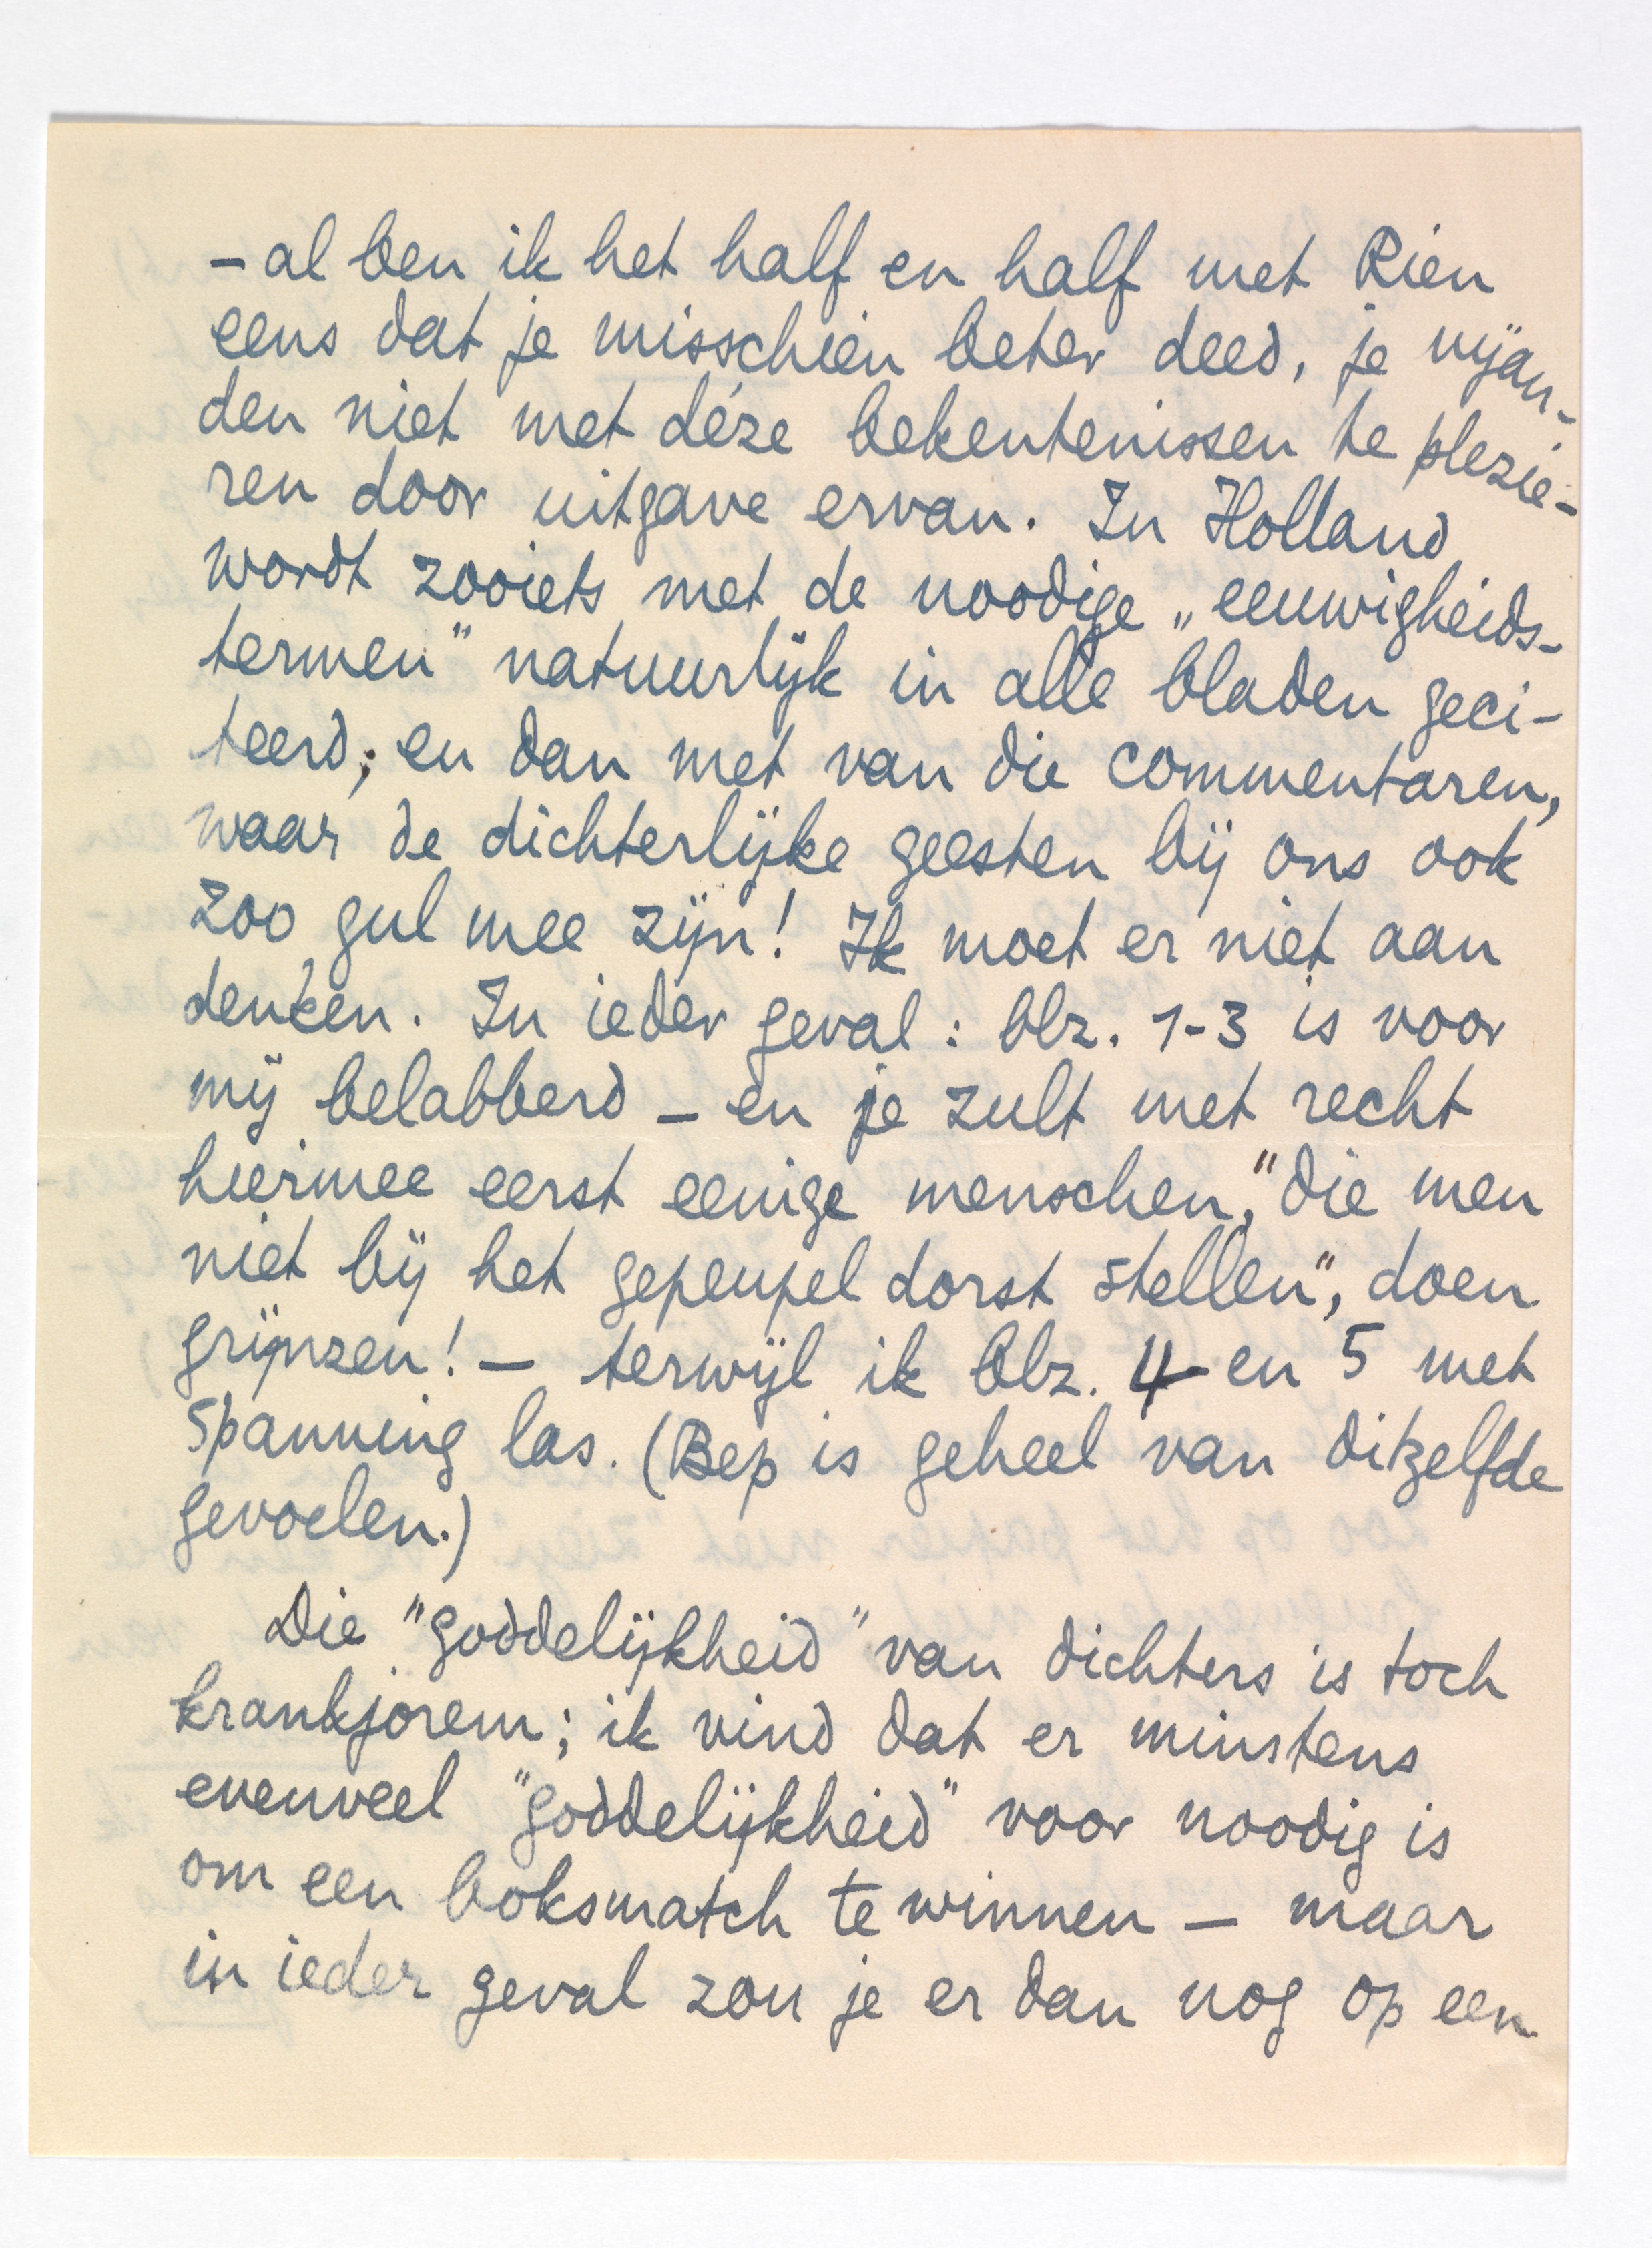 – al ben ik het half en half met Rien
eens dat je misschien beter deed, je vijan-
den niet met déze bekentenissen te plezie-
ren door uitgave ervan. In Holland
wordt zooiets met de noodige „eeuwigheids-
termen" natuurlijk in alle bladen geci-
teerd; en dan met van die commentaren,
waar de dichterlijke geesten bij ons ook
zoo gul mee zijn! Ik moet er niet aan
denken. In ieder geval: blz. 1-3 is voor
mij belabberd – en je zult met recht
hiermee eerst eenige menschen, "die men
niet bij het gepeupel dorst stellen", doen
grijnzen! – terwijl ik blz. 4 en 5 met
spanning las. (Bep is geheel van ditzelfde
gevoelen.)
Die "goddelijkheid" van dichters is toch
krankjorem; ik vind dat er minstens
evenveel "goddelijkheid" voor noodig is
om een boksmatch te winnen – maar
in ieder geval zou je er dan nog op een